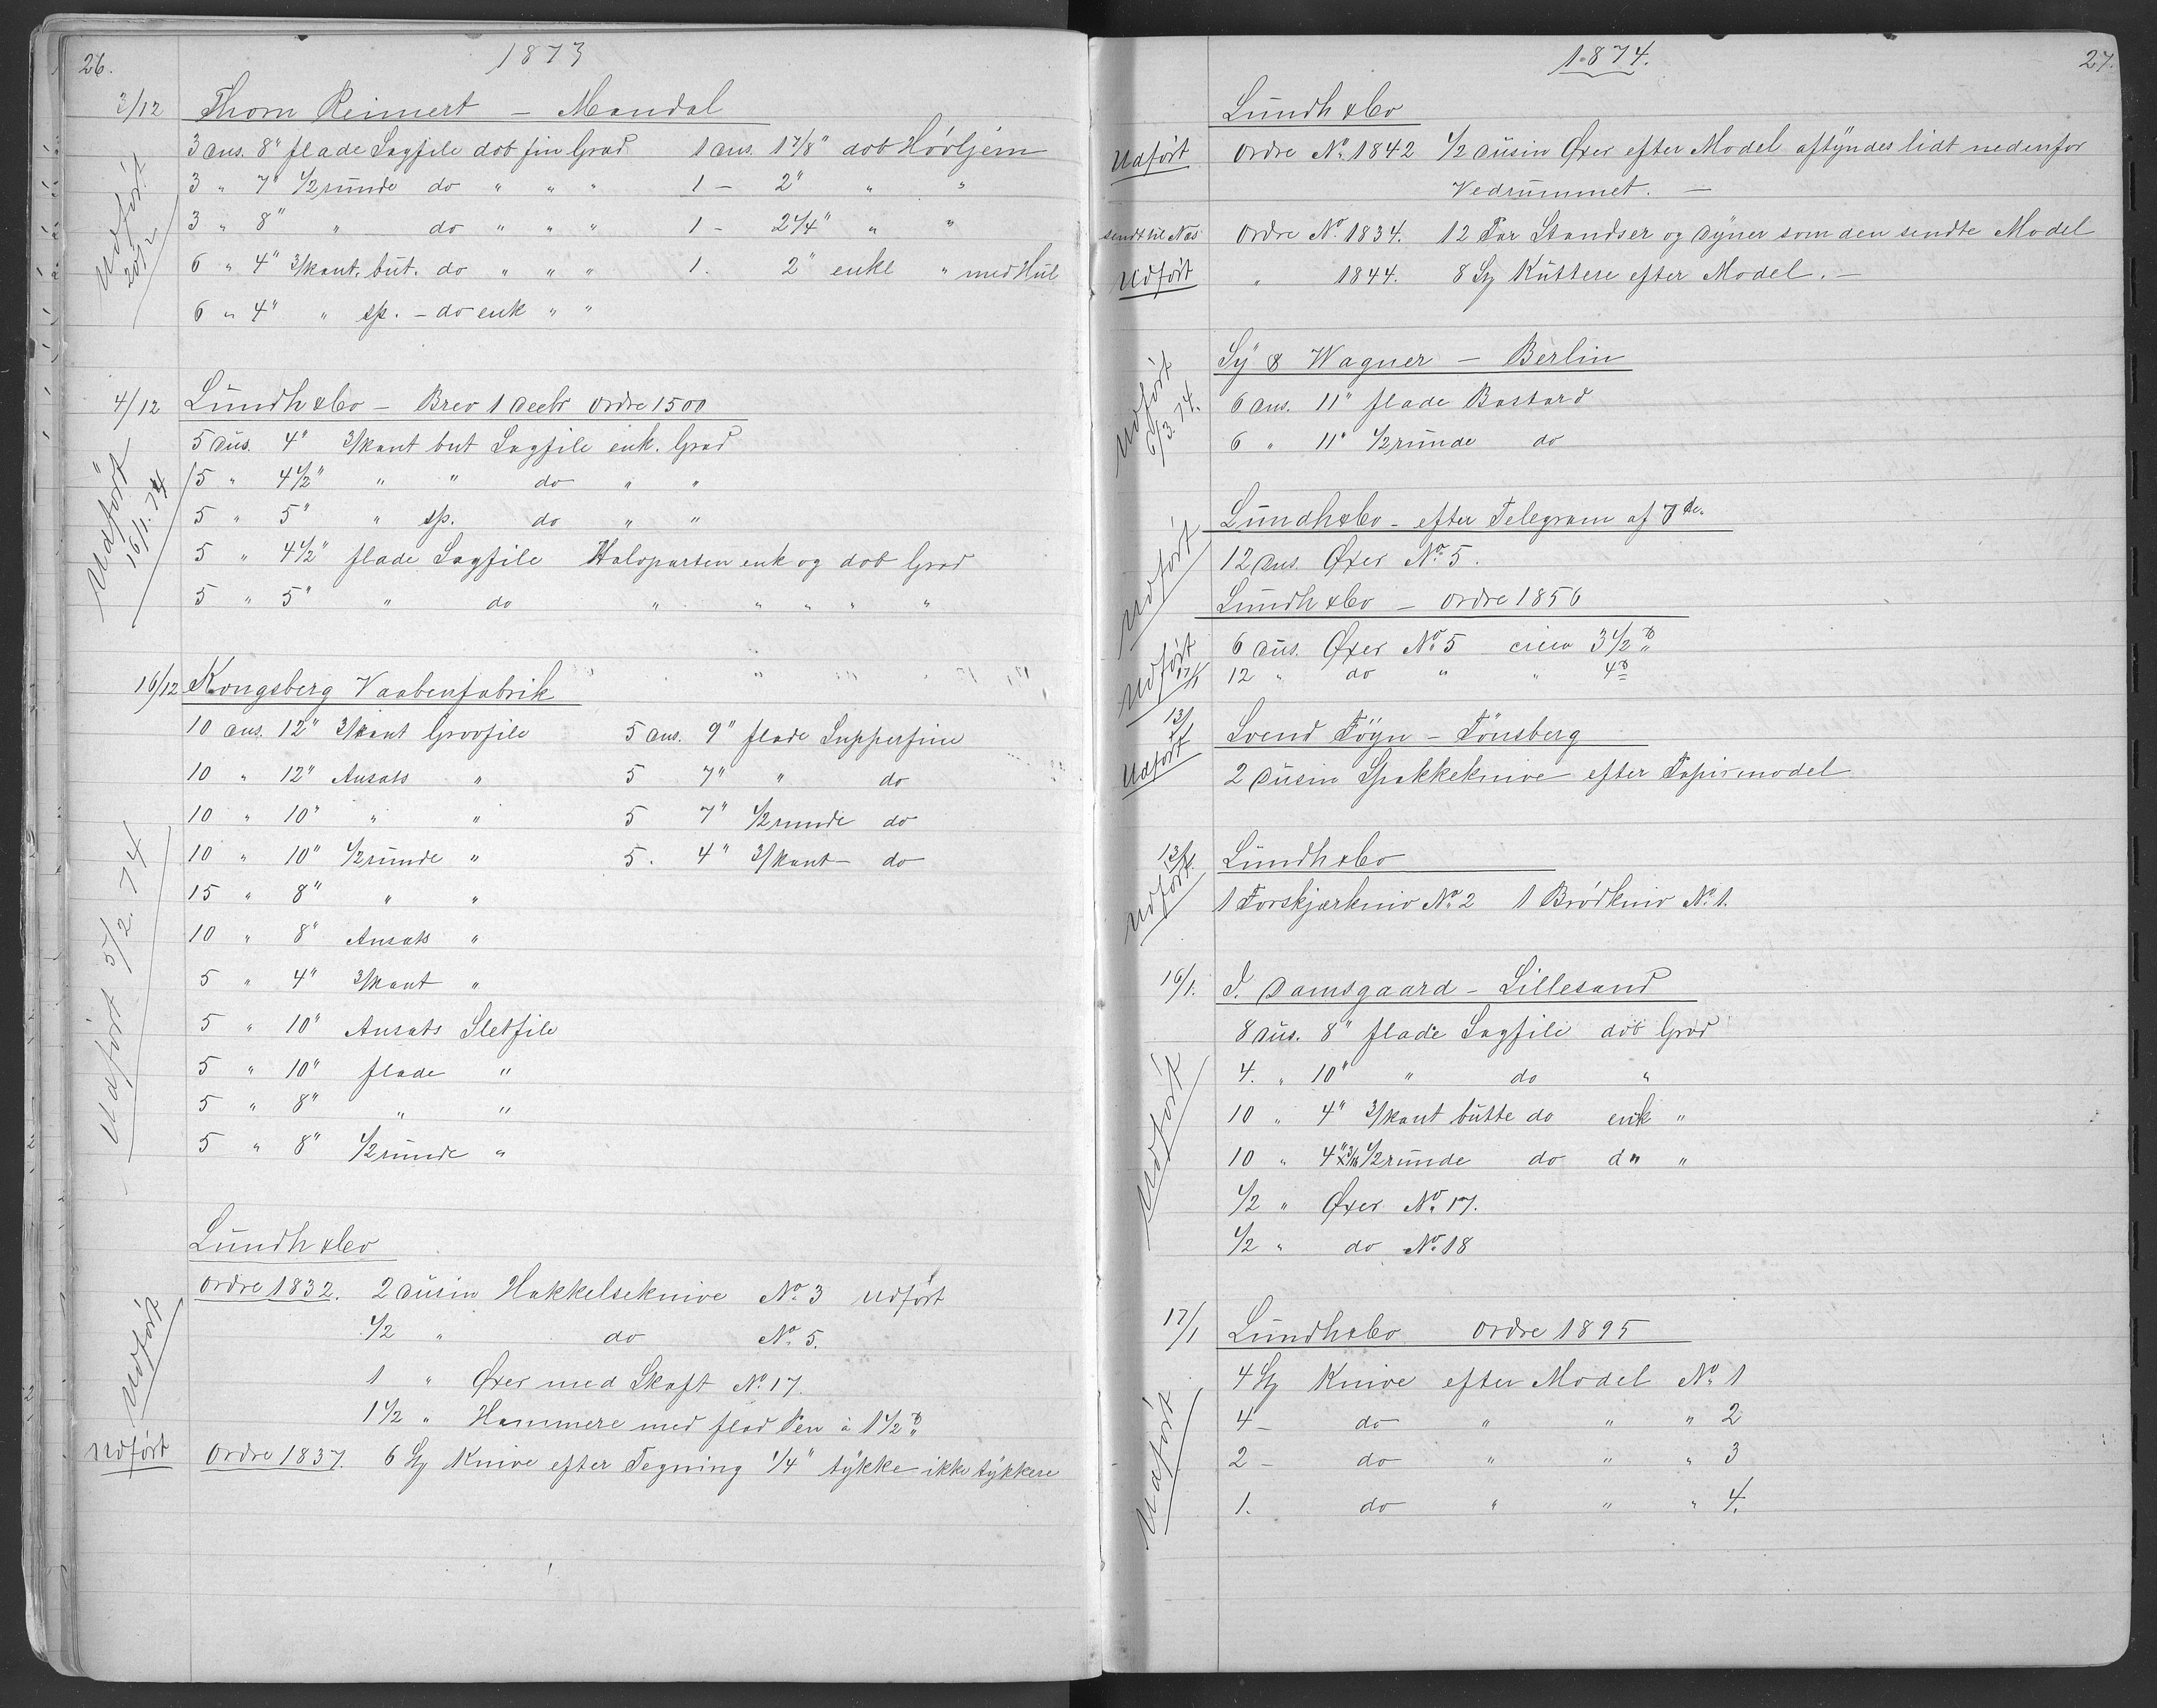 26.
1873
3/12 Thorn Reinert - Mandal
3 Dus. 8" flade Sagfile dob fin Grad 1 Dus. 1 7/8" dob Høvljern
3 " 7" 1/2 runde do " " " 1 - 2" " "
3 " 8" " do " " " 1 - 2 1/4" " "
6 " 4" 3/kant. but. do " " " 1. 2" enkl " med Hul
6 " 4" " sp. - do enk " "
Udført 20/2
4/12 Lundh & Co - Brev 1 Decbr Ordre 1500
5 Dus. 4" 3/kant but Sagfile enk. Grad
15 " 4 1/2" " " do " "
5 " 5" " sp. do " "
5 " 4 1/2" flade Sagfile Halvparten enk og dob Grad
5 " 5" " do " " " " "
Udført 16/1. 74
16/12 Kongsberg Vaabenfabrik
10 Dus. 12" 3/kant Grovfile 5 Dus. 9" flade Supperfine
10 " 12" Ansats " 5 7" " do
10 " 10" " " 5 7" 1/2 runde do
10 " 10" 1/2 runde " 5. 4" 3/kant - do
15 " 8" " "
10 " 8" Ansats "
5 " 4" 3/kant "
5 " 10" Ansats Sletfile
5 " 10" flade "
5 " 8" " "
5 " 8" 1/2 runde "
Udført 5/2. 74
Lundh & Co
Ordre 1832. 2 Dusin Hakkelseknive No 3 Udført
1/2 " do No 5.
1 " Øxer med Skaft No 17.
1 1/2 " Hammere med flad Pen à 1 1/2 ℔
Udført
Udført Ordre 1837. 6 St Knive efter Tegning 1/4" tykke ikke tykkere
1874.
27.
Lundh & Co
Udført Ordre No 1842 1/2 Dusin Øxer efter Model aftyndes lidt nedenfor
Vedrummet. -
sendt til Næs Ordre No 1834. 12 Par Standser og Dyner som den sendte Model
Udført " 1844. 8 St Kuttere efter Model. -
Sy & Wagner - Berlin
6 Dus. 11" flade Bastard
6 " 11" 1/2 runde do
Udført 6/3. 74.
Lundh & Co - efter Telegram af 7de
12 Dus. Øxer No 5.
Udført
Lundh & Co - Ordre 1856
6 Dus. Øxer No 5 circa 3 1/2 ℔
12 " do " " 4 ℔
Udført 17/1
13/1 Svend Föyn - Tönsberg
Udført 2 Dusin Spækkeknive efter Papirmodel
13/1. Lundh & Co
Udført 1 Forskjærkniv No 2 1 Brödkniv No 1.
16/1. J. Damsgaard - Lillesand
8 Dus. 8" flade Sagfile dob Grad
4. " 10" " do "
10 " 4" 3/kant butte do enk "
10 " 4" x 3/16 1/2 runde do do "
1/2 " Øxer No 17.
1/2 " do No 18
Udført
17/1 Lundh & Co Ordre 1895
4 St Knive efter Model No 1
4 - do " " " 2
2 - do " " " 3
1. do " " " 4.
Udført